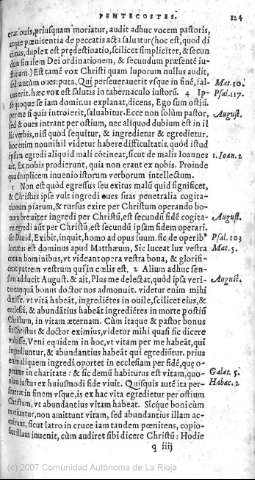 PENTECOSTES. 124
etac ouis, priusquam moriatur, audit adhuc vocem pastoris,
atque pœnitentia de peccatis acta saluatur: hoc est, quod di
cimus, duplex est prædestinatio, scilicet simpliciter, & secun
dum finalem Dei ordinationem, & secundum præsentē iu-
stitiam.) Est tamē vox Christi quam luporum nullus audit,
sed tantūm oues: puta. Qui perseuerauerit vsque in finē, sal- Mat. 10.
uus erit. hæc vox est salutis in tabernaculo iustorū. 4 Ip- Psal. 117.
se quoque se iam dominus explanat, dicens, Ego sum ostiū.
per me si quis introierit, saluabitur. Ecce non solūm pastor, August.
sed & oues intrant per ostium, nec aliquod dubium est in il
lis verbis, nisi quod sequitur, & ingredietur & egredietur.
hoc enim nonnihil videtur habere difficultatis. quòd istud
ipsum egredi aliquid mali sonet, sicut de malis Ioannes 1. Ioan. 2
ait, Ex nobis prodierunt, quia non erant ex nobis. Proinde
duplicem inuenio istorum verborum intellectum.
1 Non est quòd egressus seu exitus malū quid significet,
& Christus ipse vult ingredi oues suas penetralia cogita-
tionum piarum, & rursus exire per Christum operando bo-
na. breuiter ingredi per Christū, est secundū fidē cogita- August.
re egredi aūt per Christū, est secundū ipsam fidem operari.
de Dauid, Exibit, inquit, homo ad opus suum. sic de operib' Psal. 103
nostris dominus apud Matthæum, Sic luceat lux vestra Mat. 5.
coram hominibus, vt videant opera vestra bona, & glorifi-
cent patrem vestrum qui in cœlis est. 2 Alium adhuc sen-
sum adducit August. & ait, Plus me delectat, quòd ipsa veri- August.
tas tanquam bonus doctor nos admonuit. videtur enim mihi
dixisse, vt vitā habeāt, ingrediētes in ouile, scilicet eius, &
ecclesiæ, & abundātius habeāt ingrediētes in morte post ipsū
Christum, in vitam æternam. Cùm itaque & pastor bonus
sit Christus & doctor eximius, videtur mihi quasi sic dicere
voluisse. Veni equidem in hoc, vt vitam per me habeāt, qui
ingrediuntur, & abundantius habeāt qui egrediētur. prius
enim aliquem ingredi oportet in ecclesiam per fidē, quæ o-
peratur in charitate: & sic demū habiturus est vitam, quo- Galat. 5.
niam iustus ex huiusmodi fide viuit. Quisquis autē ita per- Habac. 2
seuerat in finem vsque, is ex hac vita egredietur per ostium
Christum, vt abundantius vitam habeat. Sic quæ boni cùm
moriuntur, non amittunt vitam, sed abundantius illam ac-
quirunt, sicut latro in cruce iam tandem pœnitens, copio-
siùs illam inuenit, cùm audiret sibi dicere Christū: Hodie
q iiij
(c) 2007 Comunidad Autónoma de La Rioja